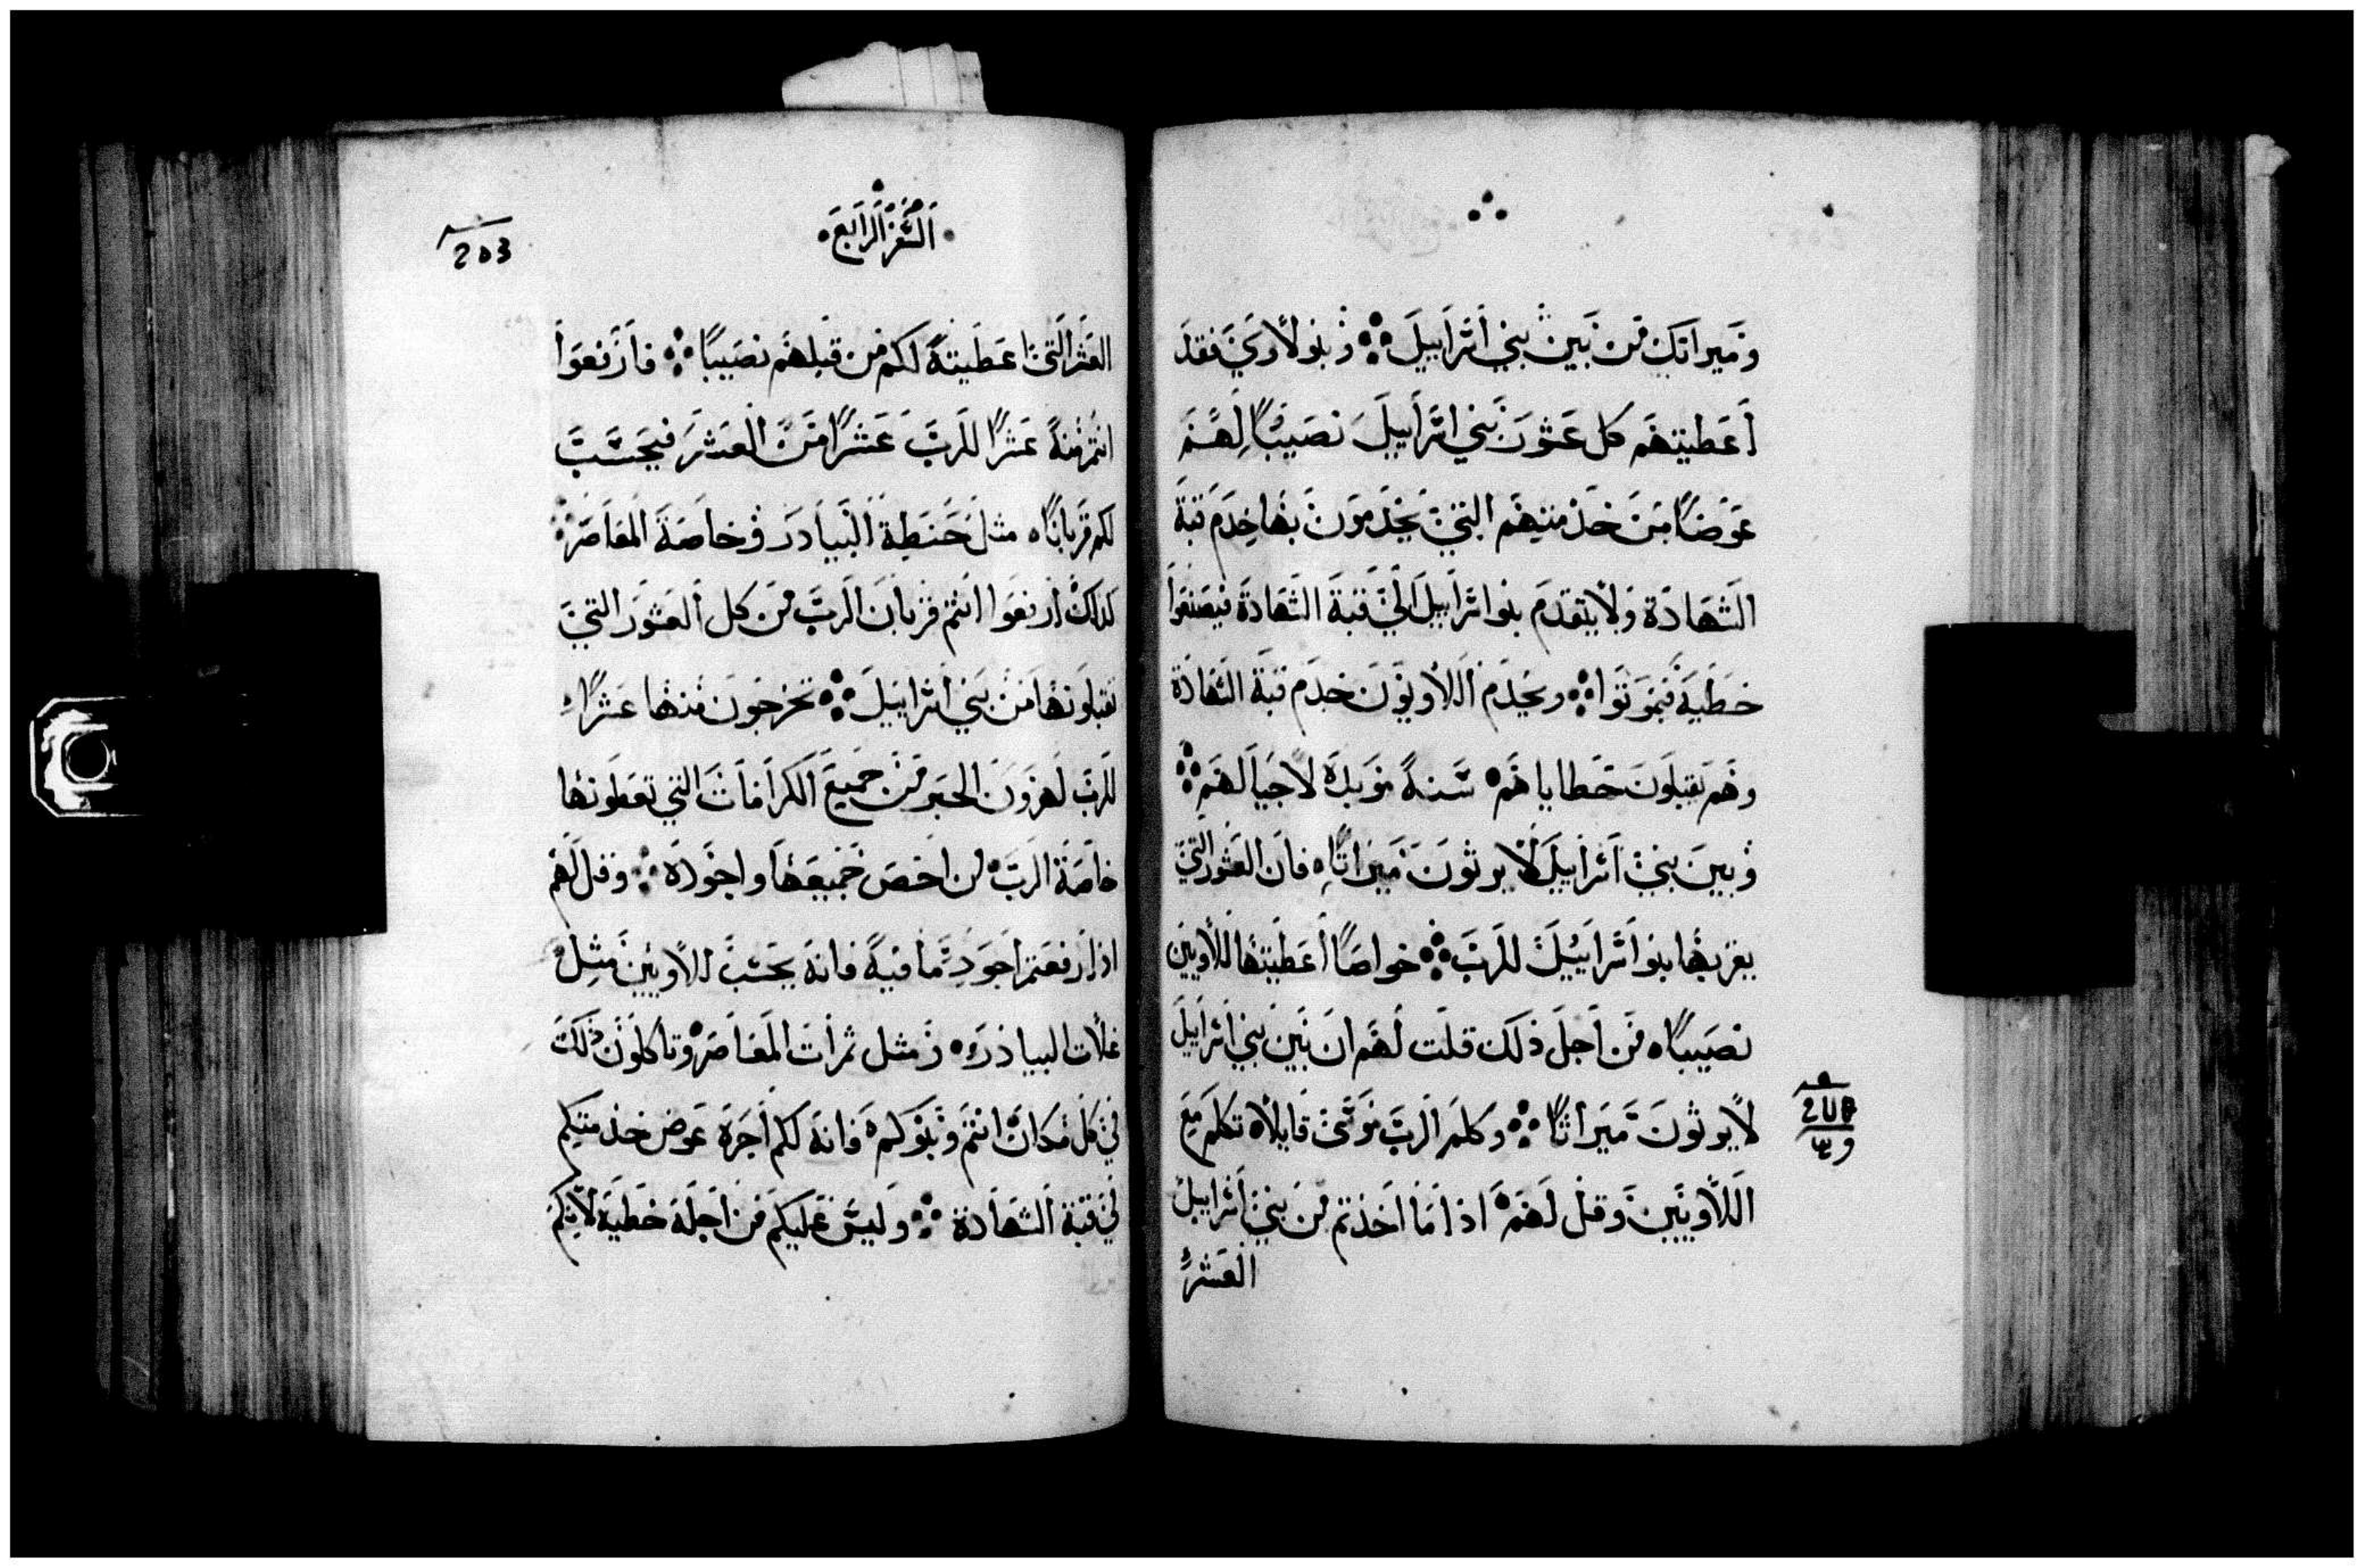 وميراتك من بين بني اسراييل ؞ وبنو لاوي فقد
اعطيتهم كل عشور بني اسراييل نصيبًا لهم
عوضًا من خدمتهم التي يخدمون بها خدم قبة
الشهادة ولا يتقدم بنوا سراييل الي قبة الشهادة فيصنعوا
خطية فيموتوا ؞ ويخدم اللاويون خدم قبة الشهادة
وهم يقبلون خطاياهم سنة موبدة لاجيالهم ؞
وبين بني اسراييل لا يرثون ميراثًا فان العشور التي
يقربها بنوا سراييل للرب ؞ خواصًا اعطيتها للاويين
نصيبًا من اجل ذلك قلت لهم ان بين بني اسراييل
لا يرثون ميراثًا ؞ وكلم الرب موسى قايلا تكلم مع
اللاويين وقل لهم اذا ما اخذتم من بني اسراييل
العشر
الشفر الرابع
203
العشر التي اعطيته لكم من قبلهم نصيبًا ؞ فارفعوا
انتم منه عشرًا للرب عشرًا من العشر فيحسب
لكم قربانًا مثل حنطة البيادر وخاصة المعاصر ؞
كذلك ارفعوا انتم قربان الرب من كل العشور التي
تقبلونها من بني اسراييل ؞ تخرجون منها عشرًا
للرب لهرون الحبر من جميع الكرامات التي تعطونها
خاصة الرب من اخص جميعها واجوده ؞ وقل لهم
اذا رفعتم اجود ما فيه فانه يحسب للاويين مثل
غلات البيادر ومثل ثمرات المعاصر وتاكلون ذلك
في كل مكان انتم وبنوكم فانه لكم اجرة عوض خدمتكم
في قبة الشهادة ؞ وليس عليكم من اجله خطية لانكم